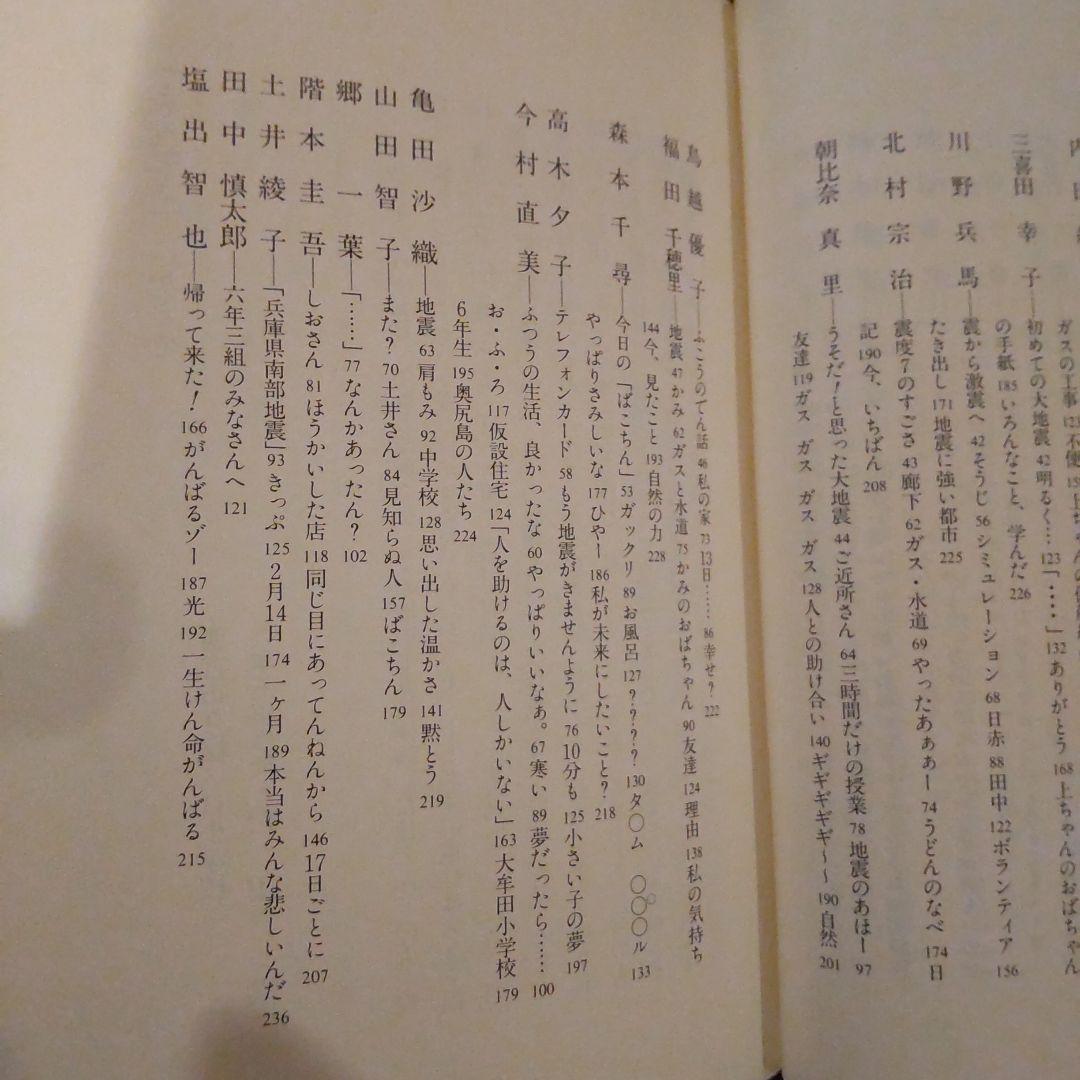 三喜田幸子――初めての大地震 42 明るく…… 123 「‥‥」 132 ありがとう 168 上ちゃんのおばちゃん
の手紙 185 いろんなこと、学んだ 226
川野兵馬――震から激震へ 42 そうじ 56 シミュレーション 68 日赤 88 田中 122 ボランティア 156
たき出し 171 地震に強い都市 225
北村宗治――震度7のすごさ 43 廊下 62 ガス・水道 69 やったあぁぁー 74 うどんのなべ 174 日
記 190 今、いちばん 208
朝比奈真里――うそだ!と思った大地震 44 ご近所さん 64 三時間だけの授業 78 地震のあほー 97
友達 119 ガス ガス ガス ガス 128 人との助け合い 140 ギギギギギ〜〜 190 自然 201
鳥越優子――ふこうのでん話 46 私の家 73 13日…… 86 幸せ? 222
福田千穂里――地震 47 かみ 62 ガスと水道 75 かみのおばちゃん 90 友達 124 理由 138 私の気持ち
144 今、見たこと 193 自然の力 228
森本千尋――今日の「ばこちん」 53 ガックリ 89 お風呂 127 ???? 130 タ〇ム 〇〇〇ル 133
やっぱりさみしいな 177 ひやー! 186 私が未来にしたいこと? 218
高木夕子――テレフォンカード 58 もう地震がきませんように 76 10分も 125 小さい子の夢 197
今村直美――ふつうの生活、良かったな 60 やっぱりいいなぁ。 67 寒い 89 夢だったら…… 100
お・ふ・ろ 117 仮設住宅 124 「人を助けるのは、人しかいない」 163 大牟田小学校 179
6年生 195 奥尻島の人たち 224
亀田沙織――地震 63 肩もみ 92 中学校 128 思い出した温かさ 141 黙とう 219
山田智子――また? 70 土井さん 84 見知らぬ人 157 ばこちん 179
郷一葉――「……」 77 なんかあったん? 102
階本圭吾――しおさん 81 ほうかいした店 118 同じ目にあってんねんから 146 17日ごとに 207
土井綾子――「兵庫県南部地震」 93 きっぷ 125 2月14日 174 一ヶ月 189 本当はみんな悲しいんだ 236
田中慎太郎――六年三組のみなさんへ 121
塩出智也――帰って来た! 166 がんばるゾー 187 光 192 一生けん命がんばる 215